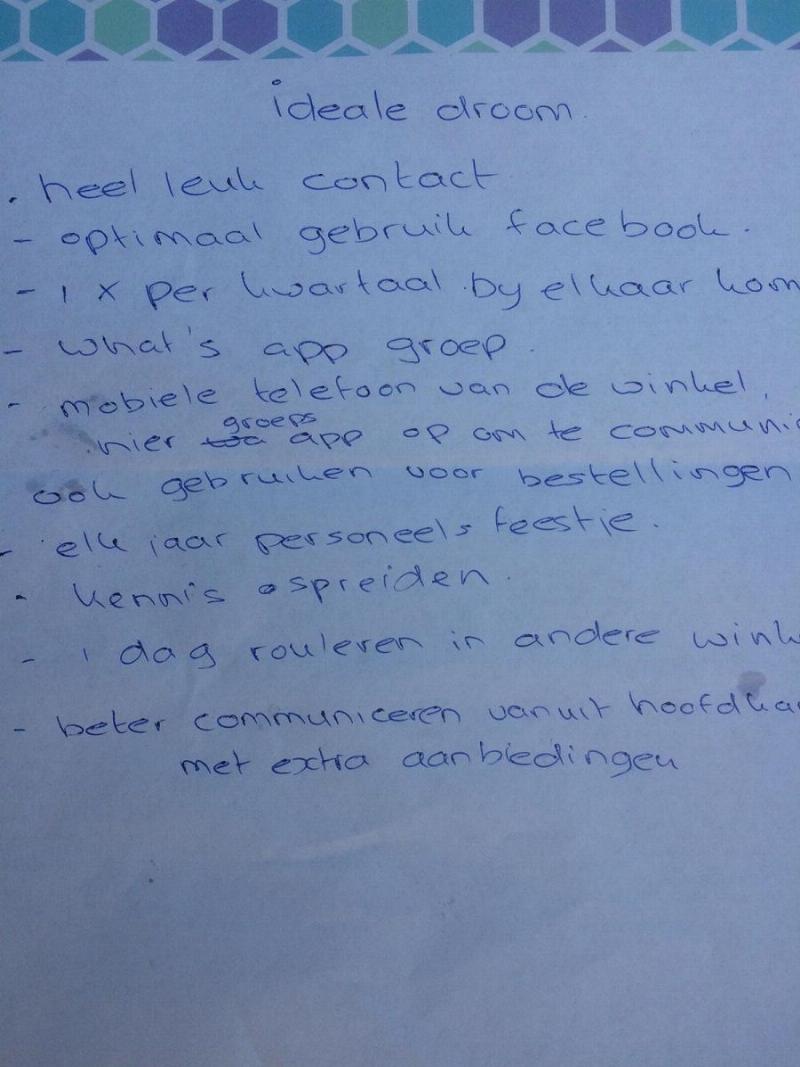 ideale droom.
. heel leuk contact
- optimaal gebruik facebook.
- 1 x per kwartaal by elkaar kom
- what's app groep.
- mobiele telefoon van de winkel,
groeps
hier app op om te communi
ook gebruiken voor bestellingen
- elk jaar personeels feestje.
- kennis spreiden.
- 1 dag rouleren in andere wink
- beter communiceren vanuit hoofdka
met extra aanbiedingen